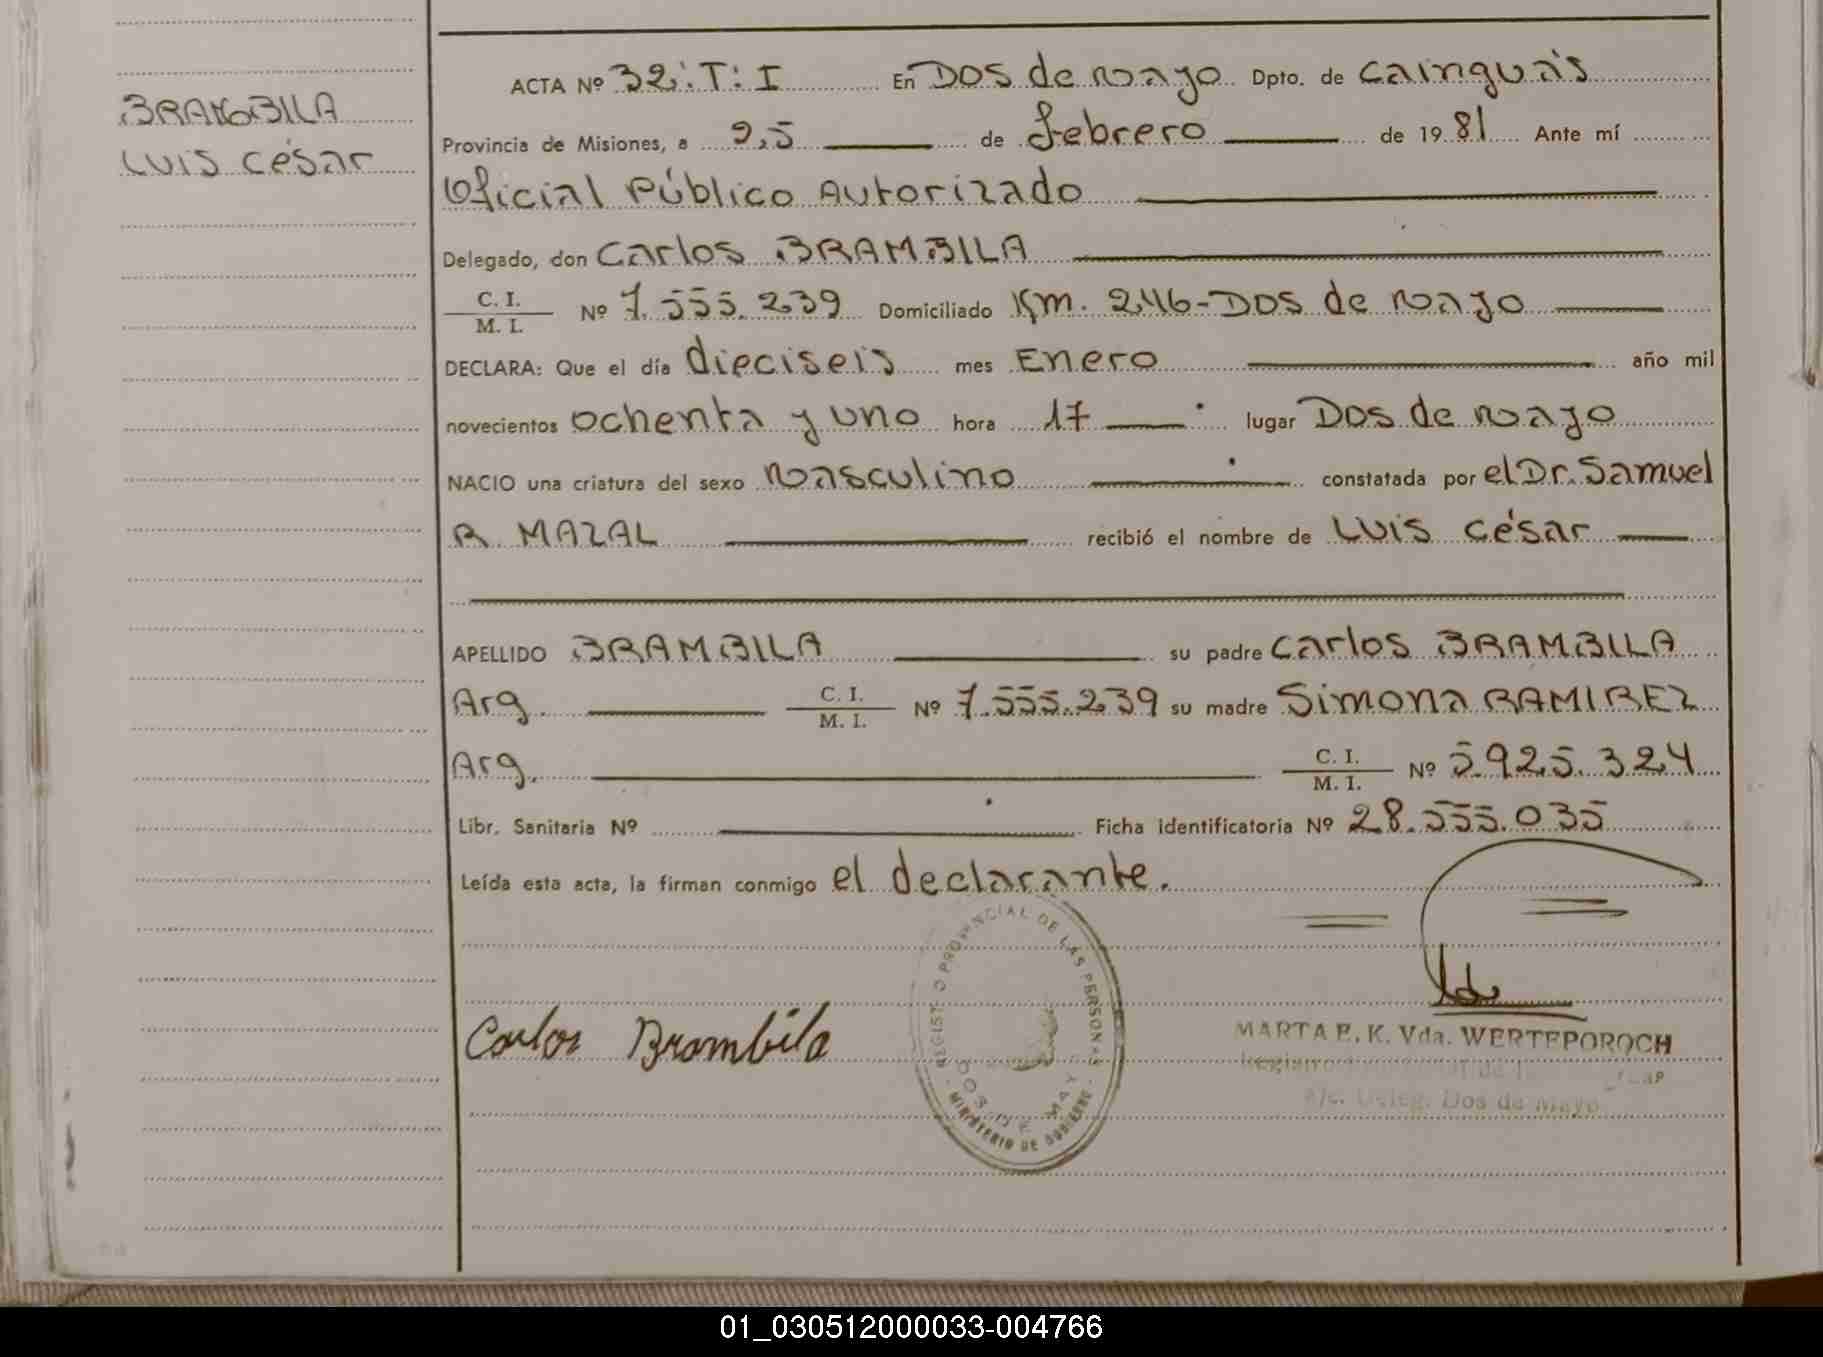 BRAMBILA
LUIS César
ACTA Nº 32:T:I En Dos de Mayo Dpto. de Cainguás
Provincia de Misiones, a 25 de febrero de 1981 Ante mí
Oficial Público Autorizado
Delegado, don Carlos BRAMBILA
C. I.
M. I.
Nº 7.555.239 Domiciliado Km. 246-Dos de Mayo
DECLARA: Que el día dieciseis mes Enero año mil
novecientos ochenta y uno hora 17 lugar Dos de Mayo
NACIO una criatura del sexo Masculino constatada por el Dr. Samuel
R. MAZAL recibió el nombre de LUIS César
APELLIDO BRAMBILA su padre Carlos BRAMBILA
Arg. C. I.
M. I.
Nº 7.555.239 su madre Simona RAMIREZ
Arg. C. I.
M. I.
Nº 5.925.324
Libr. Sanitaria Nº Ficha identificatoria Nº 28.555.035
Leída esta acta, la firman conmigo el declarante.
Carlos Brambila
REGISTRO PROVINCIAL DE LAS PERSONAS
DOS DE MAYO
MINISTERIO DE GOBIERNO
MARTA E. K. Vda. WERTEPOROCH
a/c. Deleg. Dos de Mayo
01_030512000033-004766